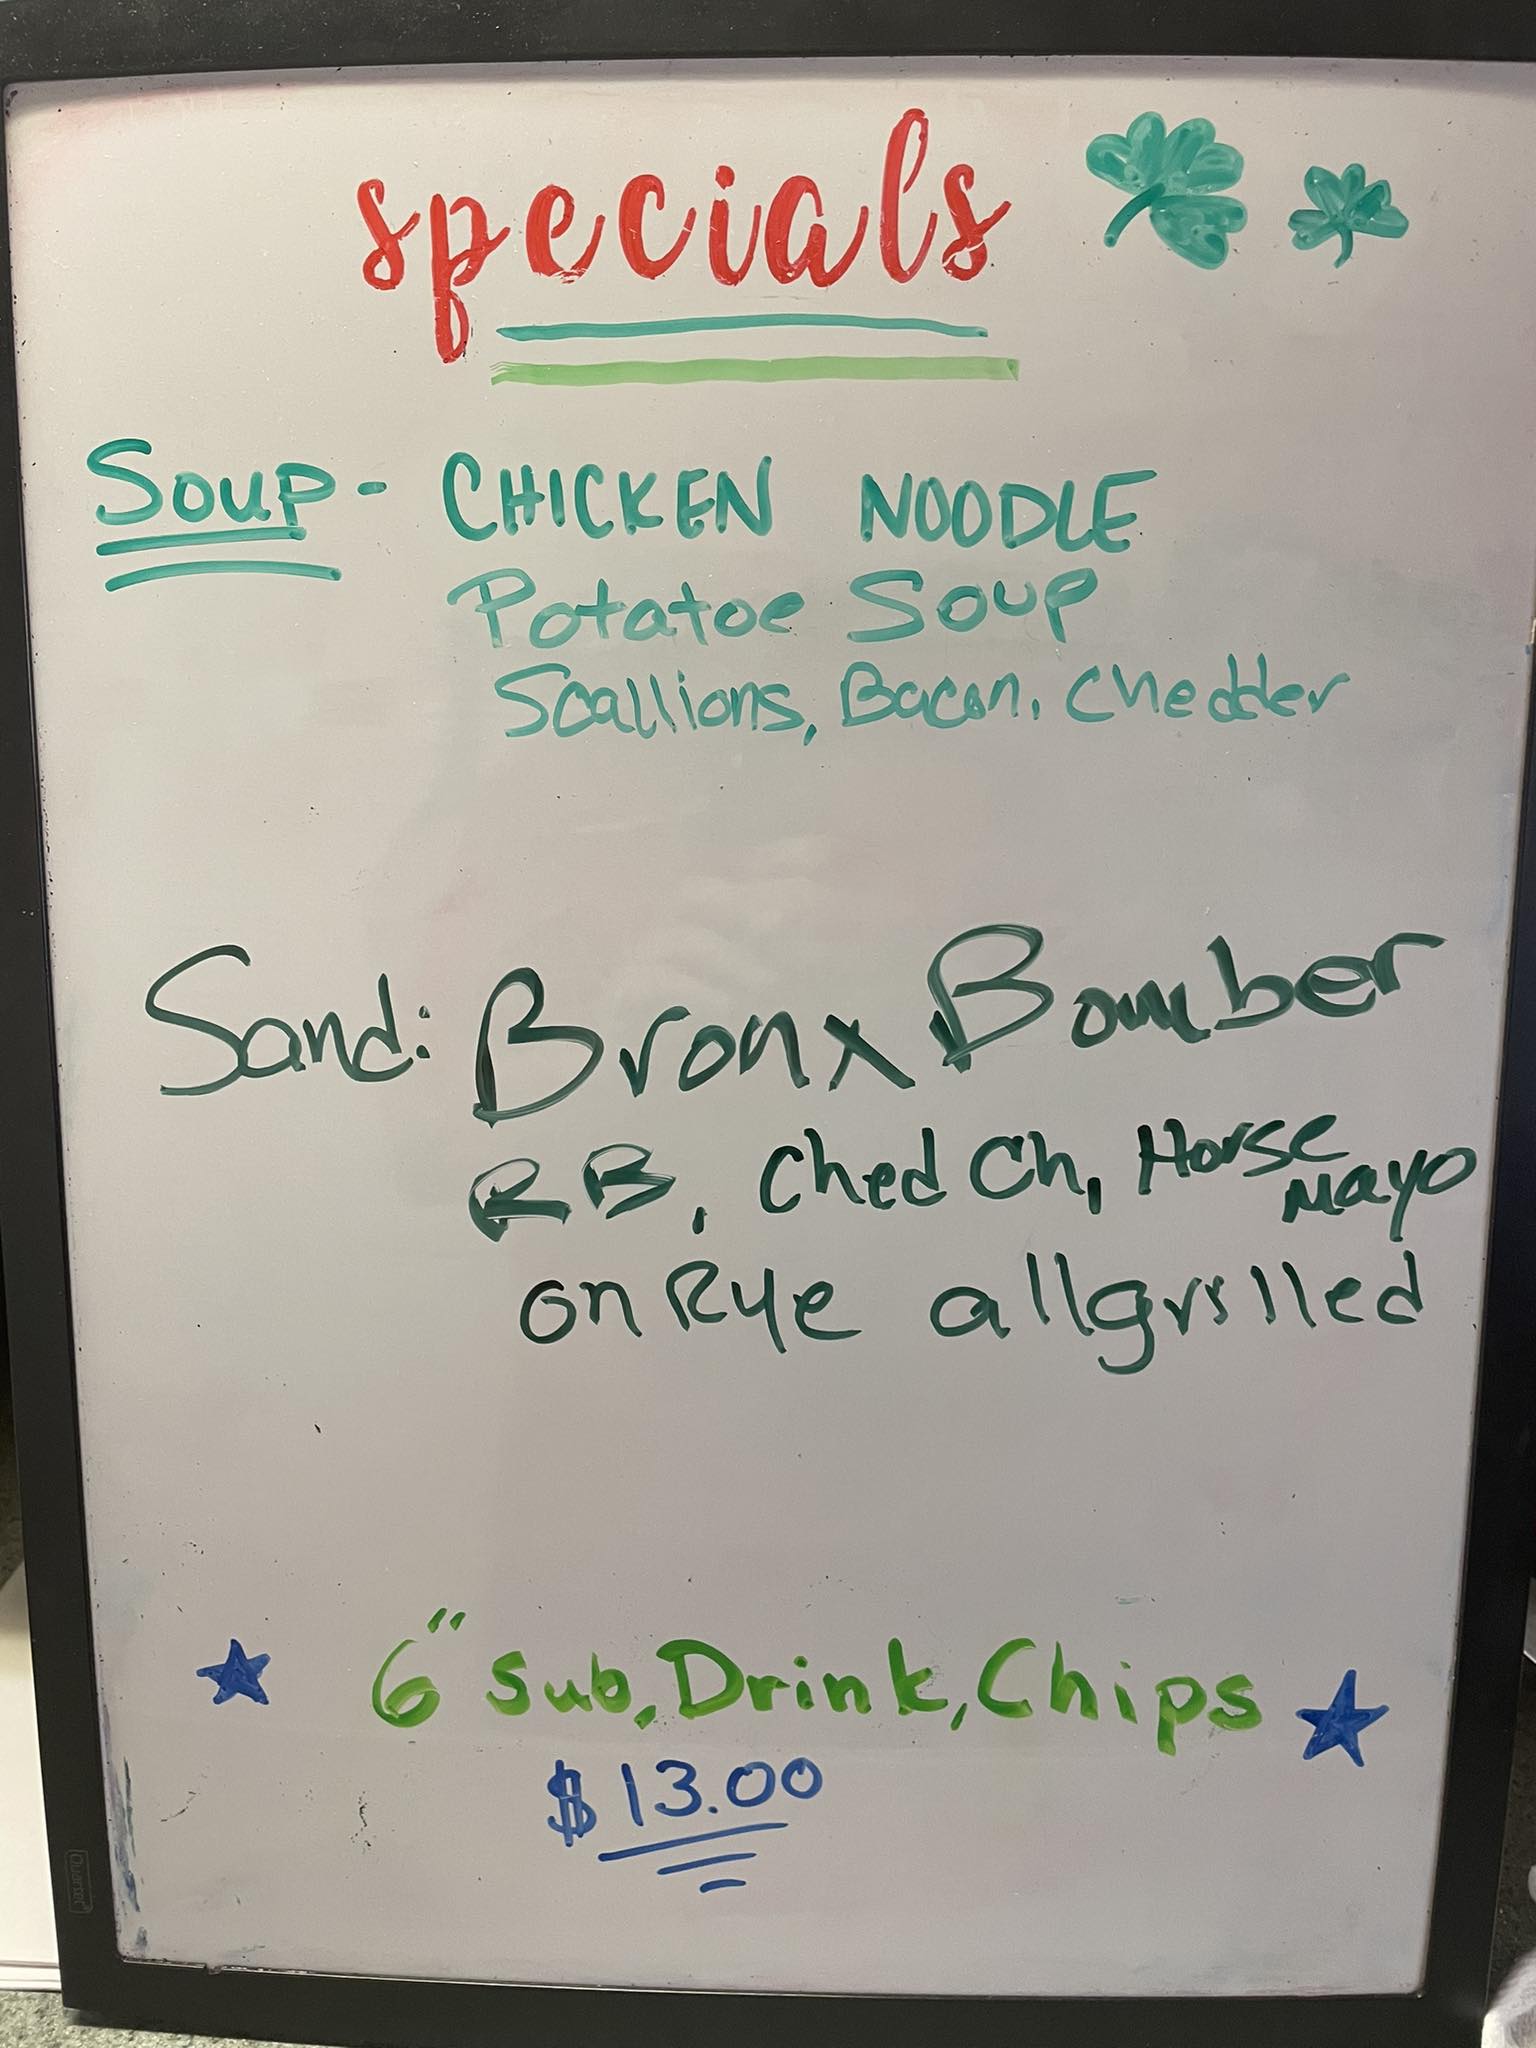 specials
Soup - CHICKEN NOODLE
Potatoe Soup
Scallions, Bacon, Chedder
Sand: Bronx Bomber
RB, Ched Ch, Horse
Mayo
on Rye all grilled
6" Sub, Drink, Chips
$13.00
Quartet